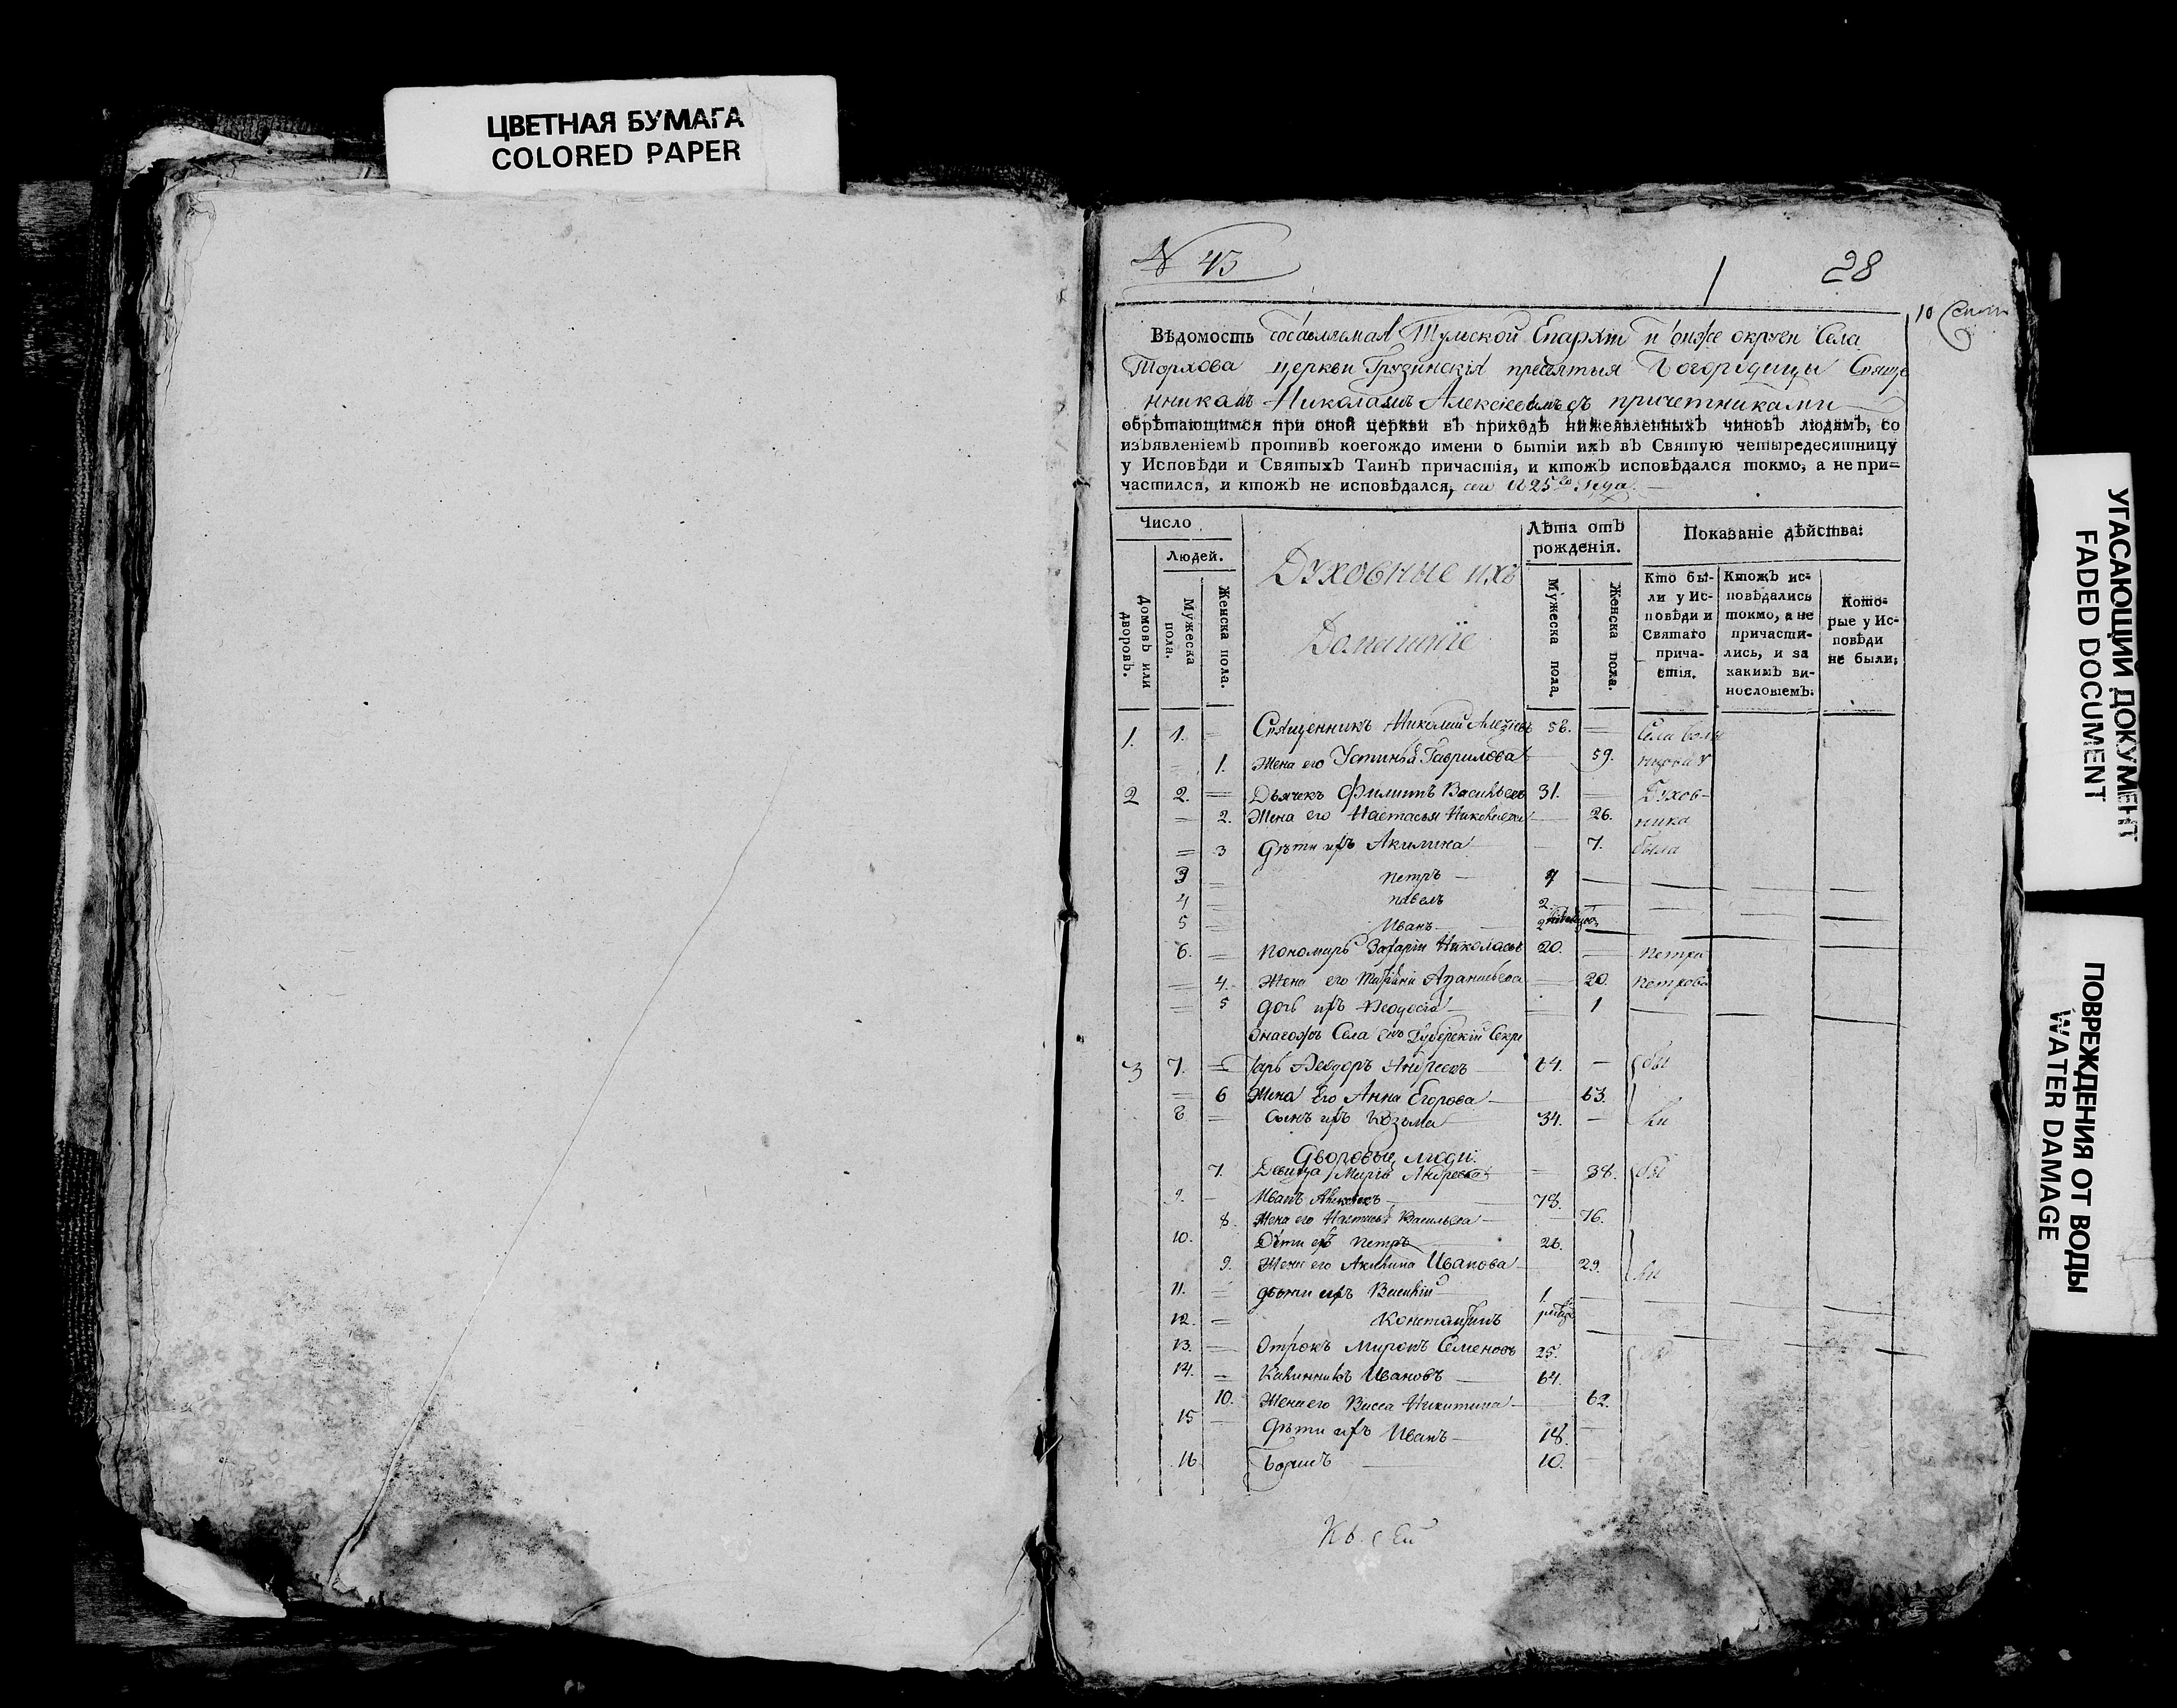 ЦВЕТНАЯ БУМАГА
COLORED PAPER
N 45
28
10
Вѣдомость Тульской Епархіи и оныя округи Села
Торхова церкви Грузинскія пресвятыя Богородицы Священ
никамъ Николаемъ Алексеевымъ съ причетниками
обрѣтающимся при оной церкви въ приходѣ нижеявленныхъ чиновъ людямъ, со
изъявленіемъ противъ коегождо имени о бытіи ихъ въ Святую четыредесятницу
у Исповѣди и Святыхъ Таинъ причастія, и ктожъ исповѣдался токмо, а не при=
частился, и ктожъ не исповѣдался, 1825го года.
Число
Людей.
Домовъ или дворовъ.
Мужеска пола.
Женска пола.
Духовные ихъ
Домашніе
Лѣта отъ рожденія.
Мужеска пола.
Женска пола.
Показаніе дѣйства:
Кто бы-
ли у Ис-
повѣди и
Святаго
прича-
стія.
Ктожъ ис-
повѣдались
токмо, а не
причасти-
лись, и за
какимъ ви-
нословіемъ.
Кото-
рые у Ис-
повѣди
не были.
1. 1. = Священникъ Николай 56. —
= 1. Жена его Устинья Гаврилова 59.
2 2. = Дьячекъ Филиппъ Васильевъ 31. — Духов-
= 2. Жена его Настасья 26. ника
= 3 Дѣти ихъ Акилина — 7. была
3 = петръ —
4 = павелъ 2. —
5 = Иванъ
6. = Пономарь Захарій Николаевъ 20. — петра
= 4. Жена его 20. петрова
= 5 дочь ихъ Феодосія — 1
Села Губернскій Секре
3 7. = тарь Феодоръ Андреевъ 64. — бы
= 6 Жена Его Анна Егорова — 63.
8 = Сынъ ихъ Козьма 34. — ли
Дворовые люди.
7. Девица Марія Андреева = 38. бы
9. — Иванъ 78.
8. Жена его Настасья Васильева — 76.
10. Дѣти ихъ петръ 26.
9. Жена его Акилина Иванова 29. ли
11. = дѣти ихъ Василій 1. —
12. = Константинъ
13. = Отрокъ Миронъ Семеновъ 25.
14. = Ивановъ 64.
10. Жена его Васса Никитина 62.
15 Дѣти ихъ Иванъ — 18.
16 Борисъ 10. —
УГАСАЮЩИЙ ДОКУМЕНТ
FADED DOCUMENT
ПОВРЕЖДЕНИЯ ОТ ВОДЫ
WATER DAMAGE